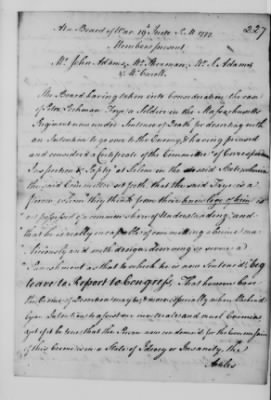 227
At a Board of War 19th June A.D. 1777
Members present
Mr. John Adams, Mr. Sherman, Mr. S. Adams
& Mr. Carroll
The Board having taken into Consideration the case
of Peter Pickman Frye a Soldier in the Massachusetts
Regiment now under Sentence of Death for deserting with
an Intention to go over to the Enemy, & having perused
and considered a Certificate of the Committee of Correspondence
Inspection & Safety at Salem in the said State, wherein
the said Committee set forth that the said Frye is a
Person whom they think from their knowledge of him is
not possessed of a common share of Understanding, and
that he is really incapable of committing a Crime
maliciously and with design deserving so severe a
Punishment as that to which he is now Sentenced, Beg
leave to Report to Congress, That however
the Crime of Desertion may be & more especially when
Intention to assist our
yet if it be true that the Person now condemned for the Commission
of this Crime is in a State of Ideocy or Insanity, the
Articles